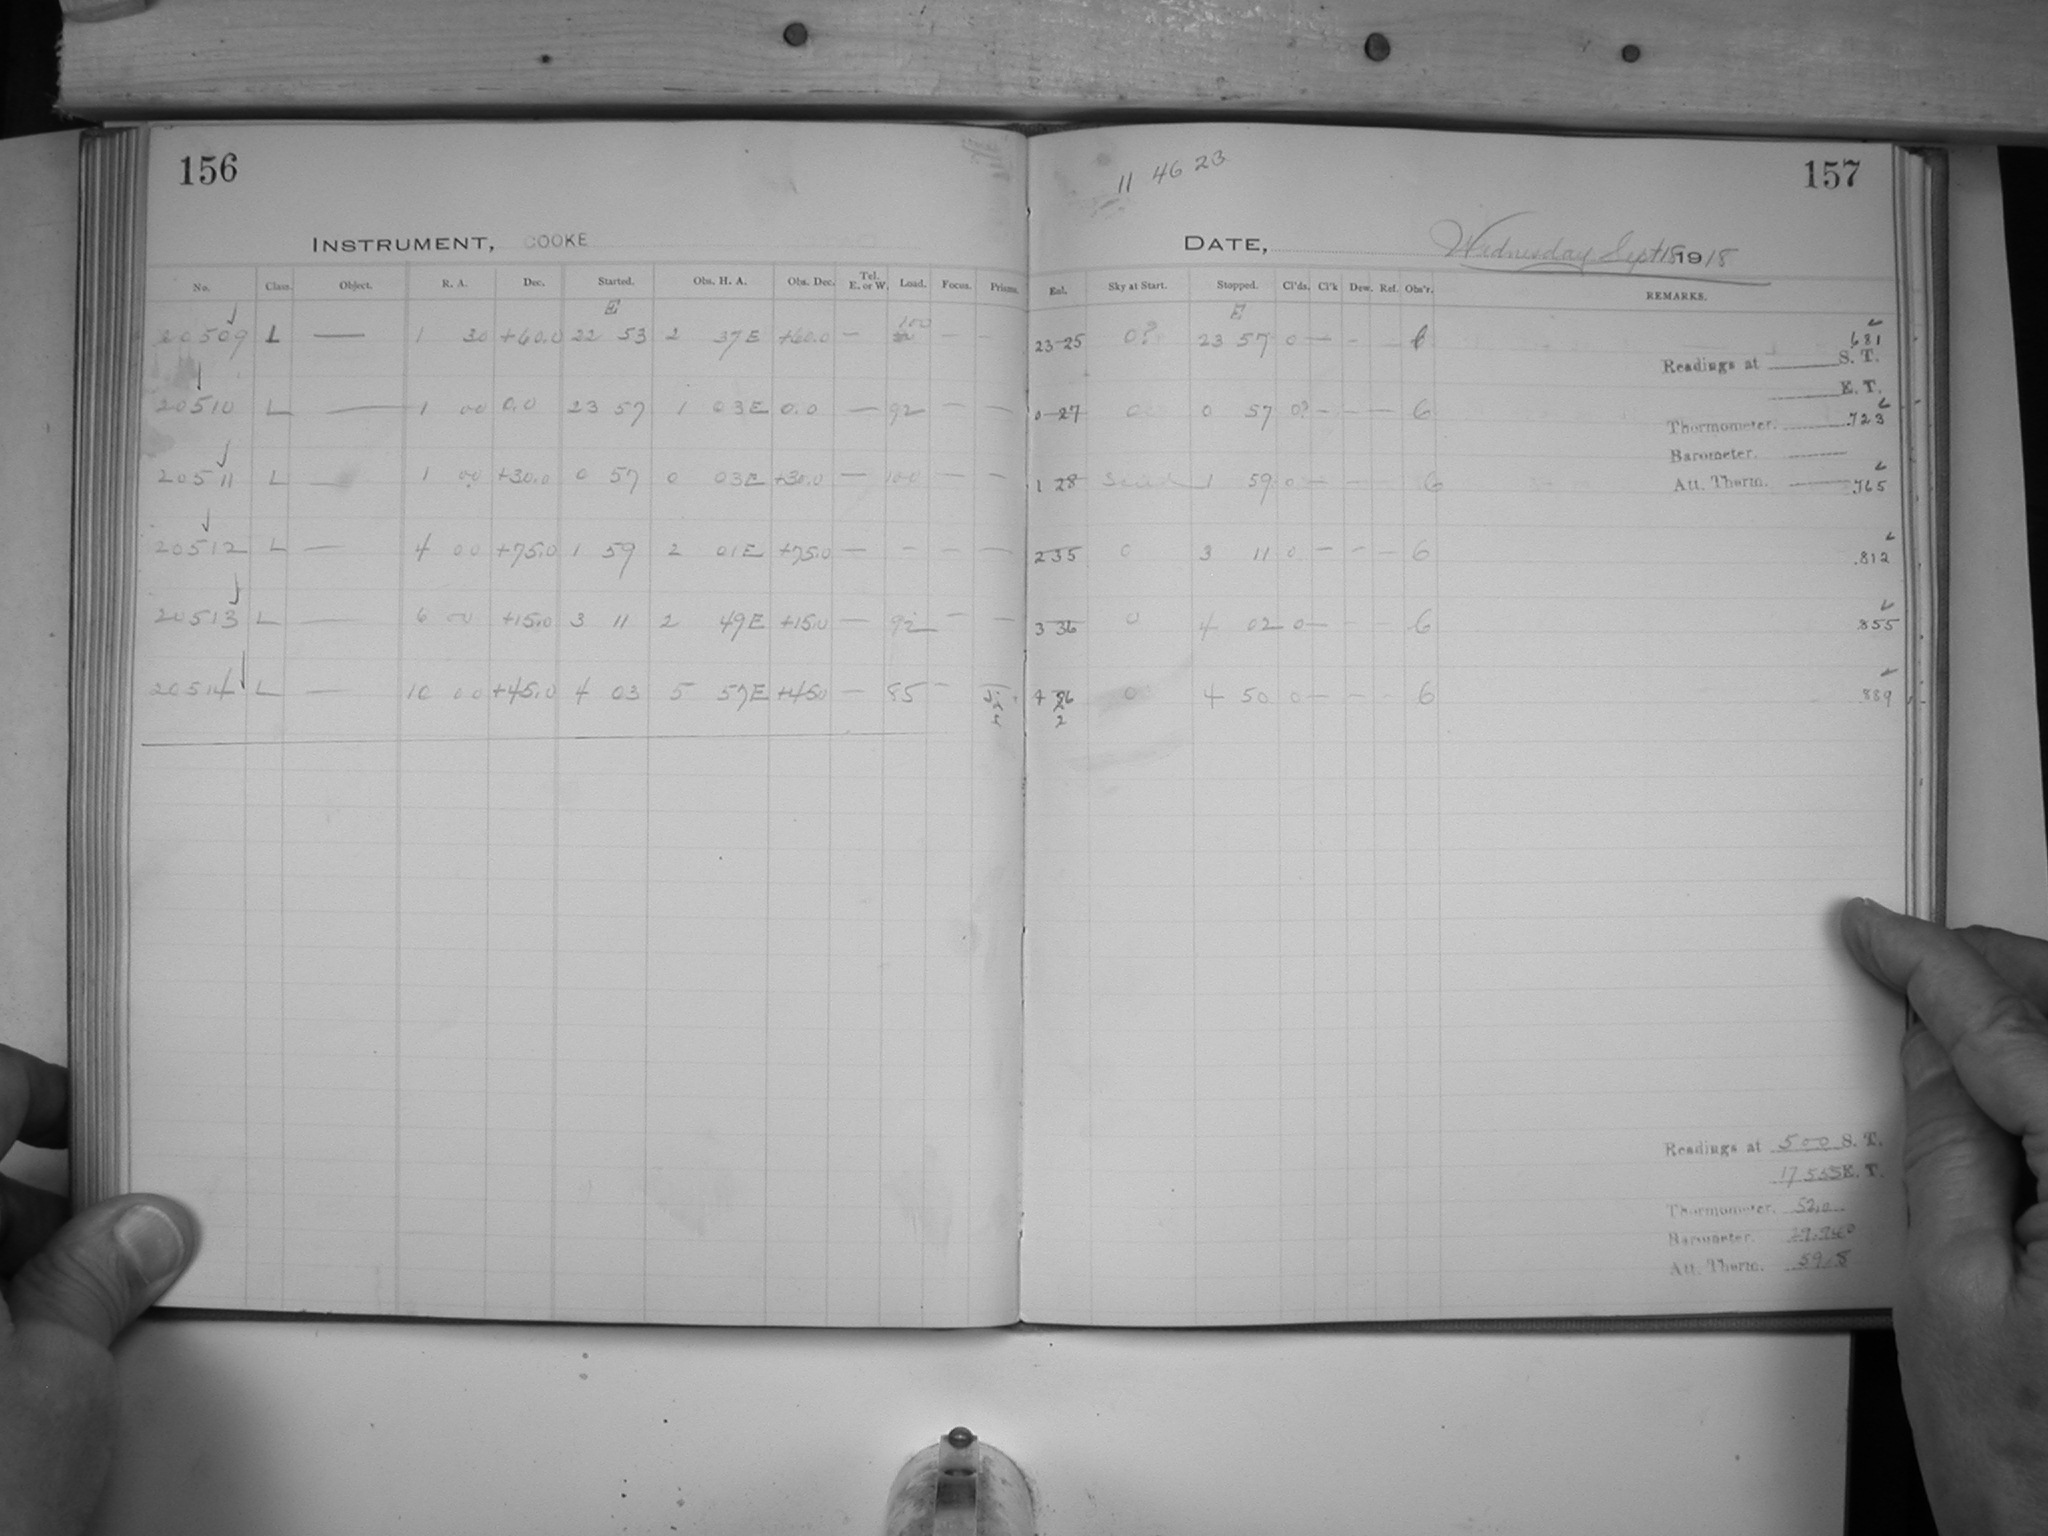 156
INSTRUMENT, COOKE
No. Class. Object. R. A. Dec. Started. Obs. H. A. Obs. Dec. Tel. E. or W. Load. Focus. Prisms.
E
20509 L — 1 30 +60.0 22 53 2 37E +60.0 — 100 — —
20510 L — 1 00 0.0 23 57 1 03E 0.0 — 92 — —
20511 L — 1 00 +30.0 0 57 0 03E +30.0 — 100 — —
20512 L — 4 00 +75.0 1 59 2 01E +75.0 — — — —
20513 L — 6 00 +15.0 3 11 2 49E +15.0 — 92 — —
20514 L — 10 00 +45.0 4 03 5 57E +45.0 — 85 —
11 46 23
157
DATE, Wednesday Sept 18 1918
Exl. Sky at Start. Stopped. Cl'ds. Cl'k Dew. Ref. Obs'r. REMARKS.
E
23 25 0? 23 57 0 — - — .681
Readings at S. T.
E. T.
0 27 0 0 57 0? — — — 6 .723
Thermometer.
Barometer.
1 28 1 59 0 — — — 6 .765
Att. Therm.
2 35 0 3 11 0 — — — 6 .812
3 36 0 4 02 0 — - - 6 .855
4 0 4 50 0 — — - 6 .889
Readings at 5 00 S. T.
17 E. T.
Thermometer. 52.0
Barometer. 29.940
Att. Therm. 59.5